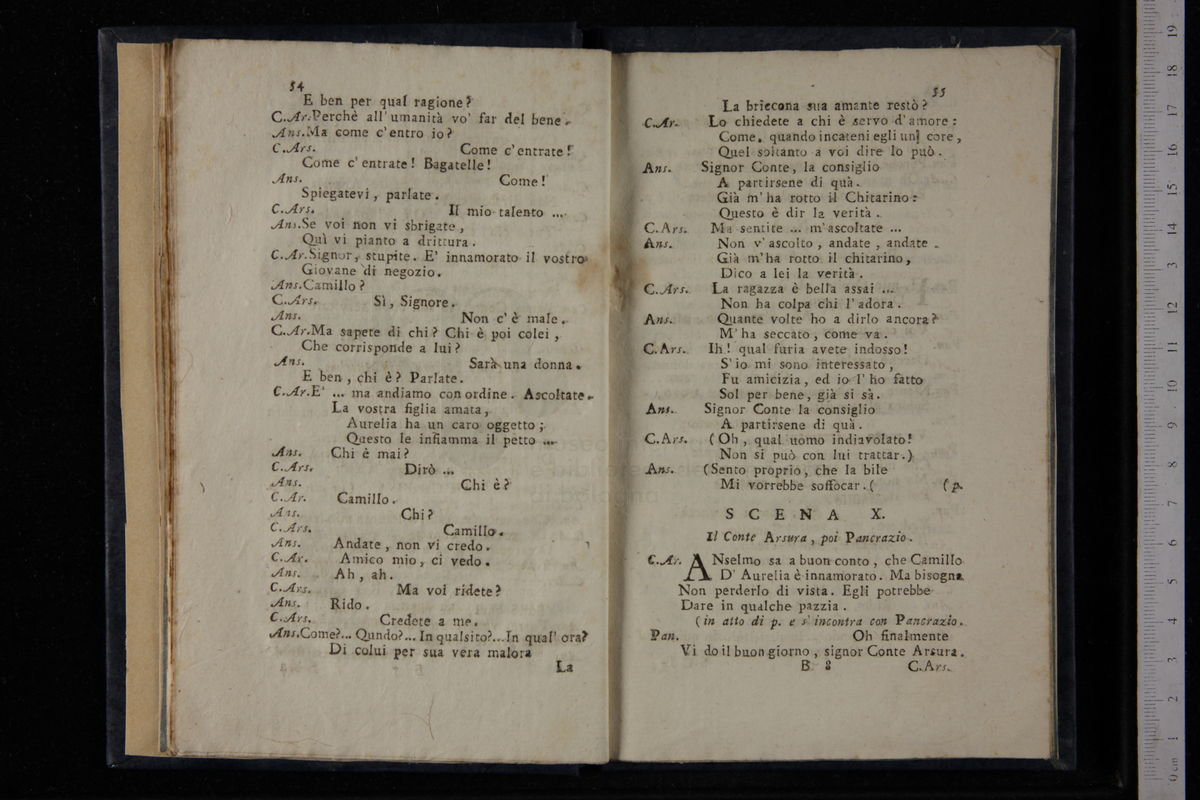 54
E ben per qual ragione?
C.Ar.Perchè all' umanità vo' far del bene.
Ans.Ma come c'entro io?
C.Ars. Come c'entrate!
Come c' entrate! Bagatelle!
Ans. Come!
Spiegatevi, parlate.
C.Ars. Il mio talento ...
Ans.Se voi non vi sbrigate,
Quì vi pianto a drittura.
C.Ar.Signor, stupite. E' innamorato il vostro
Giovane di negozio.
Ans.Camillo?
C.Ars. Sì, Signore.
Ans. Non c' è male.
C.Ar.Ma sapete di chi? Chi è poi colei,
Che corrisponde a lui?
Ans. Sarà una donna.
E ben, chi è? Parlate.
C.Ar.E' ... ma andiamo con ordine. Ascoltate.
La vostra figlia amata,
Aurelia ha un caro oggetto;
Questo le infiamma il petto ...
Ans. Chi è mai?
C.Ars. Dirò ...
Ans. Chi è?
C.Ar. Camillo.
Ans. Chi?
C.Ars. Camillo.
Ans. Andate, non vi credo.
C.Ar. Amico mio, ci vedo.
Ans. Ah, ah.
C.Ars. Ma voi ridete?
Ans. Rido.
C.Ars. Credete a me.
Ans.Come?... Qundo?... In qualsito?...In qual' ora?
Di colui per sua vera malora
La
55
La briccona sua amante restò?
C.Ar. Lo chiedete a chi è servo d'amore:
Come, quando incateni egli un core,
Quel soltanto a voi dire lo può.
Ans. Signor Conte, la consiglio
A partirsene di quà.
Già m'ha rotto il Chitarino:
Questo è dir la verità.
C.Ars. Ma sentite ... m'ascoltate ...
Ans. Non v' ascolto, andate, andate.
Già m'ha rotto il chitarino,
Dico a lei la verità.
C.Ars. La ragazza è bella assai ...
Non ha colpa chi l'adora.
Ans. Quante volte ho a dirlo ancora?
M'ha seccato, come va.
C.Ars. Ih! qual furia avete indosso!
S'io mi sono interessato,
Fu amicizia, ed io l'ho fatto
Sol per bene, già si sà.
Ans. Signor Conte la consiglio
A partirsene di quà.
C.Ars. (Oh, qual uomo indiavolato!
Non si può con lui trattar.)
Ans. (Sento proprio, che la bile
Mi vorrebbe soffocar.( (p.
SCENA X.
Il Conte Arsura, poi Pancrazio.
C.Ar. ANselmo sa a buon conto, che Camillo
D' Aurelia è innamorato. Ma bisogna
Non perderlo di vista. Egli potrebbe
Dare in qualche pazzia.
(in atto di p. e s' incontra con Pancrazio.
Pan. Oh finalmente
Vi do il buon giorno, signor Conte Arsura.
B 3 C.Ars.
19
18
17
16
15
14
13
12
11
10
9
8
7
6
5
4
3
2
1
0 cm